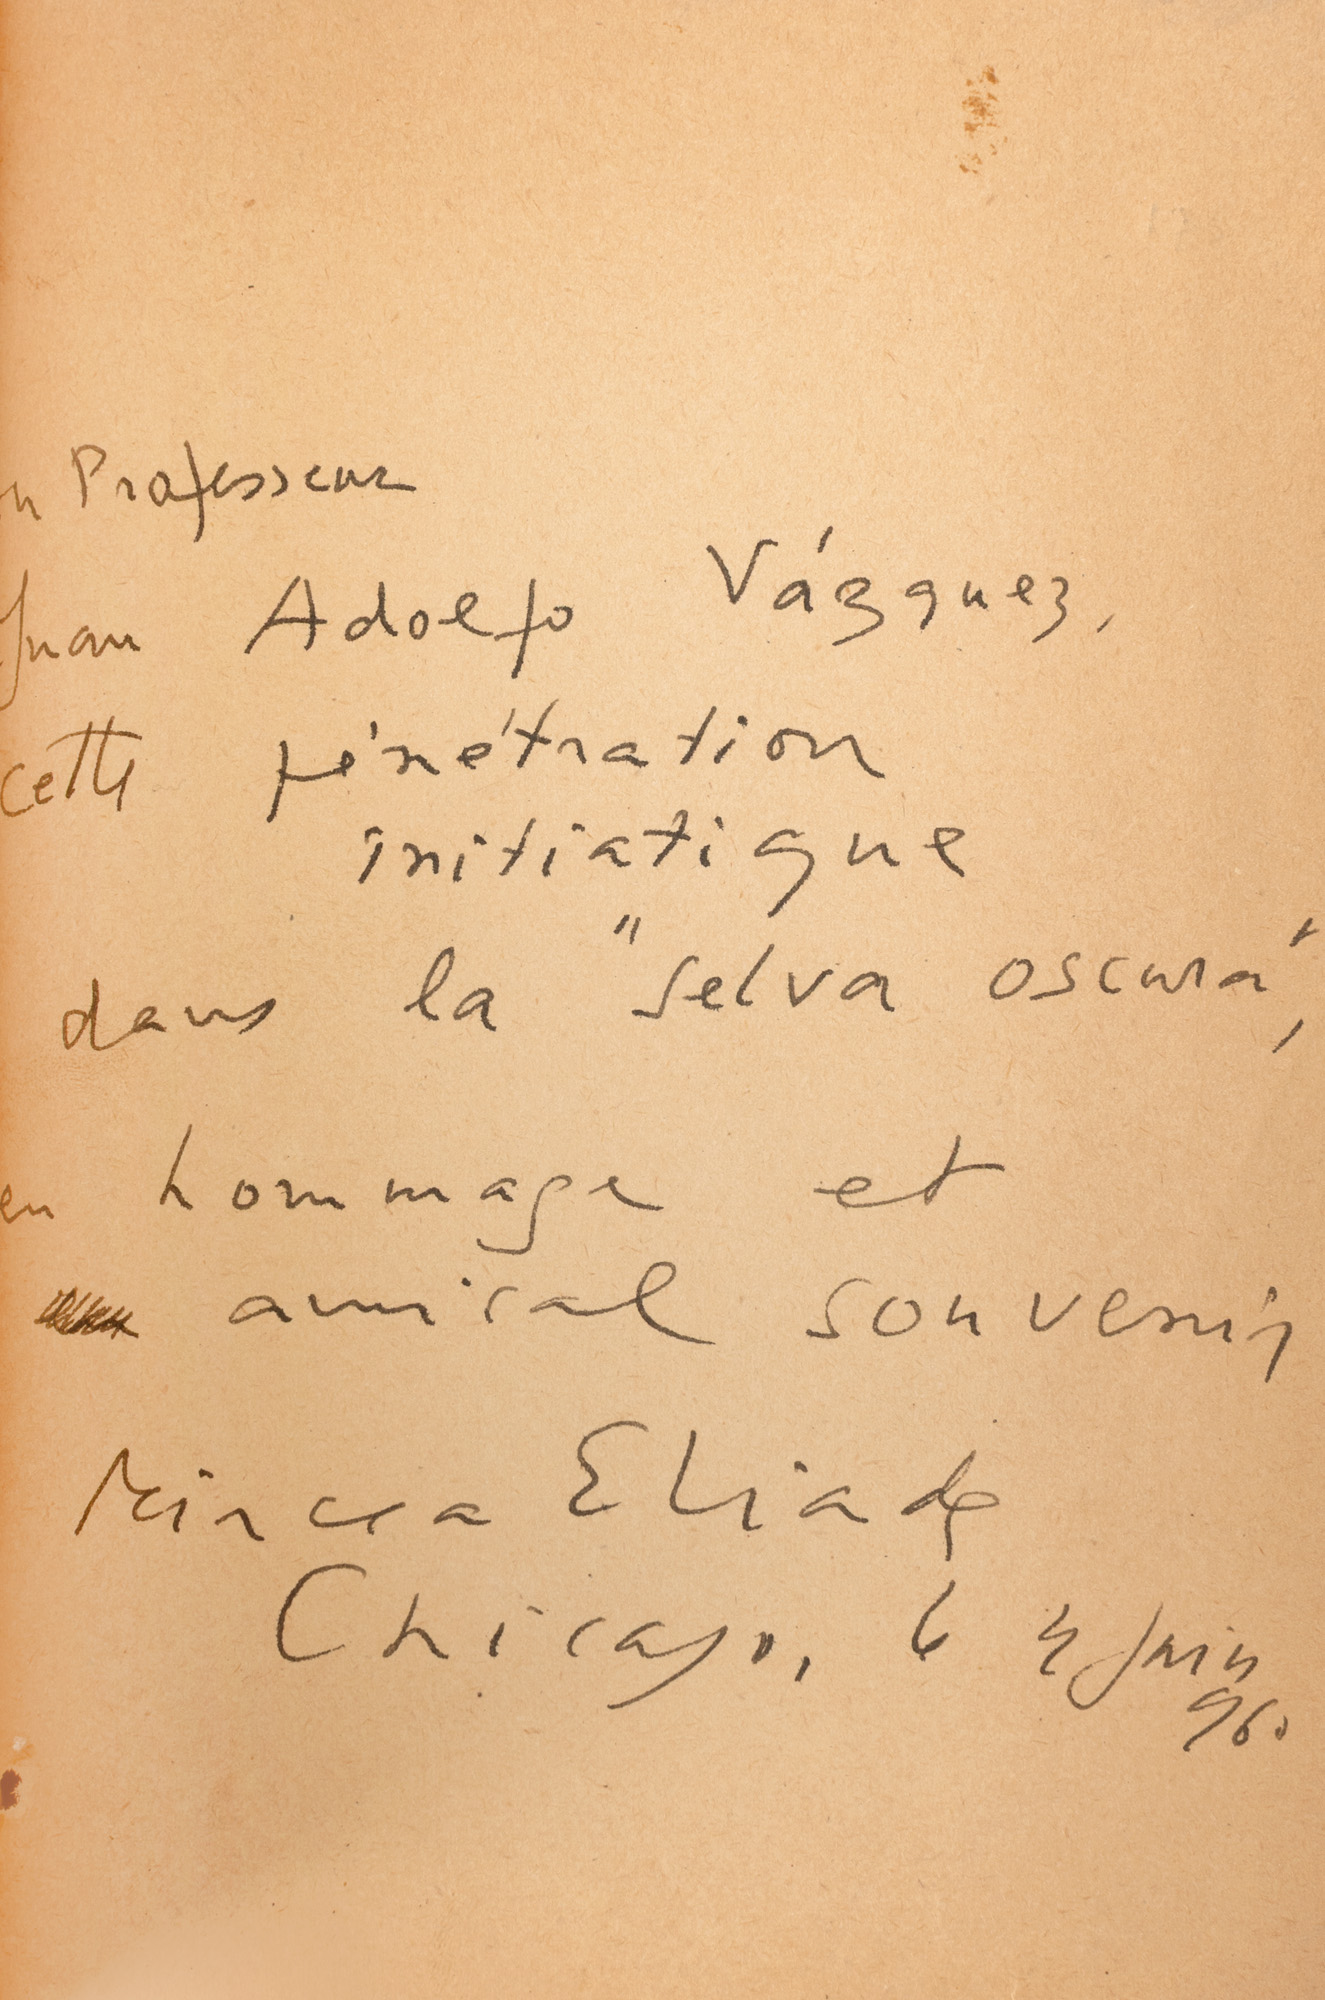 Professeur
Juan Adolfo Vázquez,
cette pénétration
initiatique
dans la "selva oscura",
en hommage et
amical souvenir
Mircea Eliade
Chicago, le 4 Juin
960